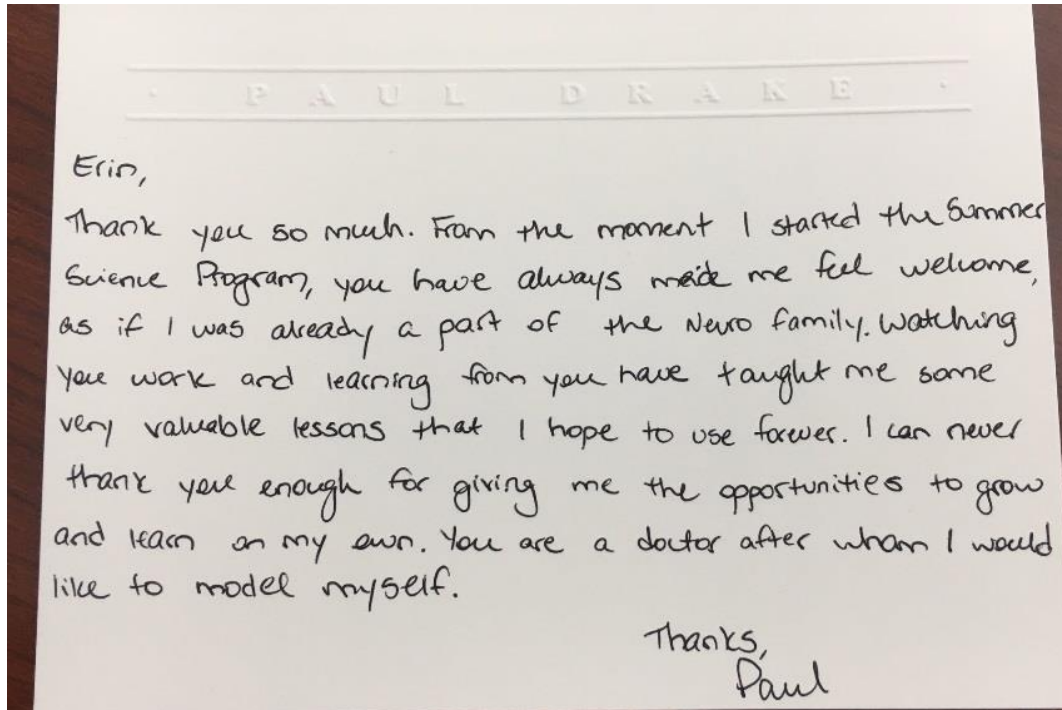 · PAUL DRAKE ·
Erin,
Thank you so much. From the moment I started the Summer
Science Program, you have always made me feel welcome,
as if I was already a part of the Neuro family. Watching
you work and learning from you have taught me some
very valuable lessons that I hope to use forever. I can never
thank you enough for giving me the opportunities to grow
and learn on my own. You are a doctor after whom I would
like to model myself.
Thanks,
Paul